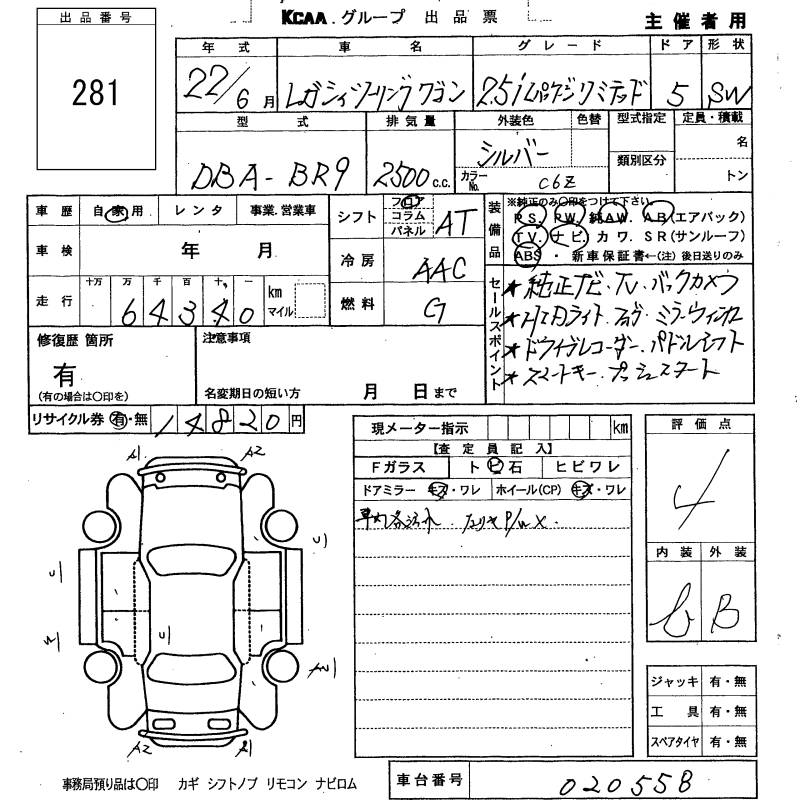 KCAA.グループ 出品票
主催者用
出品番号
281
年式 車名 グレード ドア 形状
22/6月 レガシィツーリングワゴン 2.5i Lパッケージリミテッド 5 SW
型式 排気量 外装色 色替 型式指定 定員・積載
DBA-BR9 2500 c.c. シルバー 名
カラーNo. C6Z 類別区分 トン
車歴 自家用 レンタ 事業.営業車
シフト フロア コラム パネル AT
車検 年 月
冷房 AAC
走行 十万 万 千 百 十 一 km マイル
64340
燃料 G
装備品 ※純正のみ〇印をつけて下さい。
P.S. P.W. 純A.W. A.B(エアバック)
T.V. ナビ. カワ. S.R(サンルーフ)
ABS・新車保証書←(注)後日送りのみ
セールスポイント
★純正ナビ.TV.バックカメラ
★HIDライト.フォグ.ミラーウィンカー
★ドライブレコーダー.パドルシフト
★スマートキー.プッシュスタート
修復歴 箇所
有
(有の場合は〇印を)
注意事項
名変期日の短い方 月 日まで
リサイクル券 有・無 14820円
現メーター指示 km
【査定員記入】
Fガラス トビ石 ヒビワレ
ドアミラー キズ・ワレ ホイール(CP) キズ・ワレ
評価点
4
内装 外装
B
A1 A2
U U
U
A2 A1
ジャッキ 有・無
工具 有・無
スペアタイヤ 有・無
事務局預り品は〇印 カギ シフトノブ リモコン ナビロム
車台番号 020558